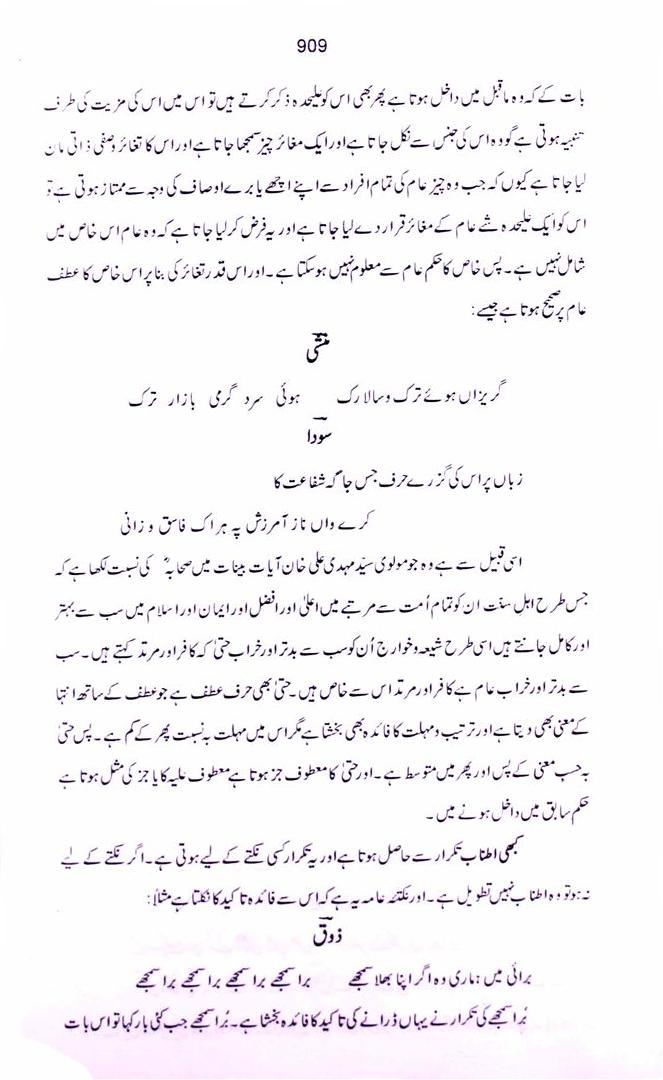 909
بات کے کہ وہ ماقبل میں داخل ہوتا ہے پھر بھی اس کو علیحدہ ذکر کرتے ہیں تو اس میں اس کی مزیت کی طرف
تنبیہ ہوتی ہے گو وہ اس کی جنس سے نکل جاتا ہے اور ایک مغائر چیز سمجھا جاتا ہے اور اس کا تغائر وصفی ذاتی مان
لیا جاتا ہے کیوں کہ جب وہ چیز عام کی تمام افراد سے اپنے اچھے یا برے اوصاف کی وجہ سے ممتاز ہوتی ہے تو
اس کو ایک علیحدہ شے عام کے مغائر قرار دے لیا جاتا ہے اور یہ فرض کر لیا جاتا ہے کہ وہ عام اس خاص میں
شامل نہیں ہے۔ پس خاص کا حکم عام سے معلوم نہیں ہوسکتا ہے۔ اور اس قدر تغائر کی بنا پر اس خاص کا عطف
عام پر صحیح ہوتا ہے جیسے:
منشی
گریزاں ہوئے ترک و سالارک ہوئی سرد گرمی بازار ترک
سودا
زباں پر اس کی گزرے حرف جس جاگہ شفاعت کا
کرے واں ناز آمرزش پہ ہر اک فاسق و زانی
اسی قبیل سے ہے وہ جو مولوی سیّد مہدی علی خان آیات بینات میں صحابہؓ کی نسبت لکھا ہے کہ
جس طرح اہلِ سنت ان کو تمام اُمت سے مرتبے میں اعلیٰ اور افضل اور ایمان اور اسلام میں سب سے بہتر
اور کامل جانتے ہیں اسی طرح شیعہ و خوارج اُن کو سب سے بدتر اور خراب حتیٰ کہ کافر اور مرتد کہتے ہیں۔ سب
سے بدتر اور خراب عام ہے کافر اور مرتد اس سے خاص ہیں۔ حتیٰ بھی حرف عطف ہے جو عطف کے ساتھ انتہا
کے معنی بھی دیتا ہے اور ترتیب و مہلت کا فائدہ بھی بخشتا ہے مگر اس میں مہلت بہ نسبت پھر کے کم ہے۔ پس حتیٰ
بہ حسب معنی کے پس اور پھر میں متوسط ہے۔ اور حتیٰ کا معطوف جز ہوتا ہے معطوف علیہ کا یا جز کی مثل ہوتا ہے
حکم سابق میں داخل ہونے میں۔
کبھی اطناب تکرار سے حاصل ہوتا ہے اور یہ تکرار کسی نکتے کے لیے ہوتی ہے۔ اگر نکتے کے لیے
نہ ہو تو وہ اطناب نہیں تطویل ہے۔ اور نکتہ عامہ یہ ہے کہ اس سے فائدہ تاکید کا نکلتا ہے مثلاً:
ذوق
برائی میں ہماری وہ اگر اپنا بھلا سمجھے برا سمجھے برا سمجھے برا سمجھے برا سمجھے
بُرا سمجھے کی تکرار نے یہاں ڈرانے کی تاکید کا فائدہ بخشا ہے۔ بُرا سمجھے جب کئی بار کہا تو اس بات